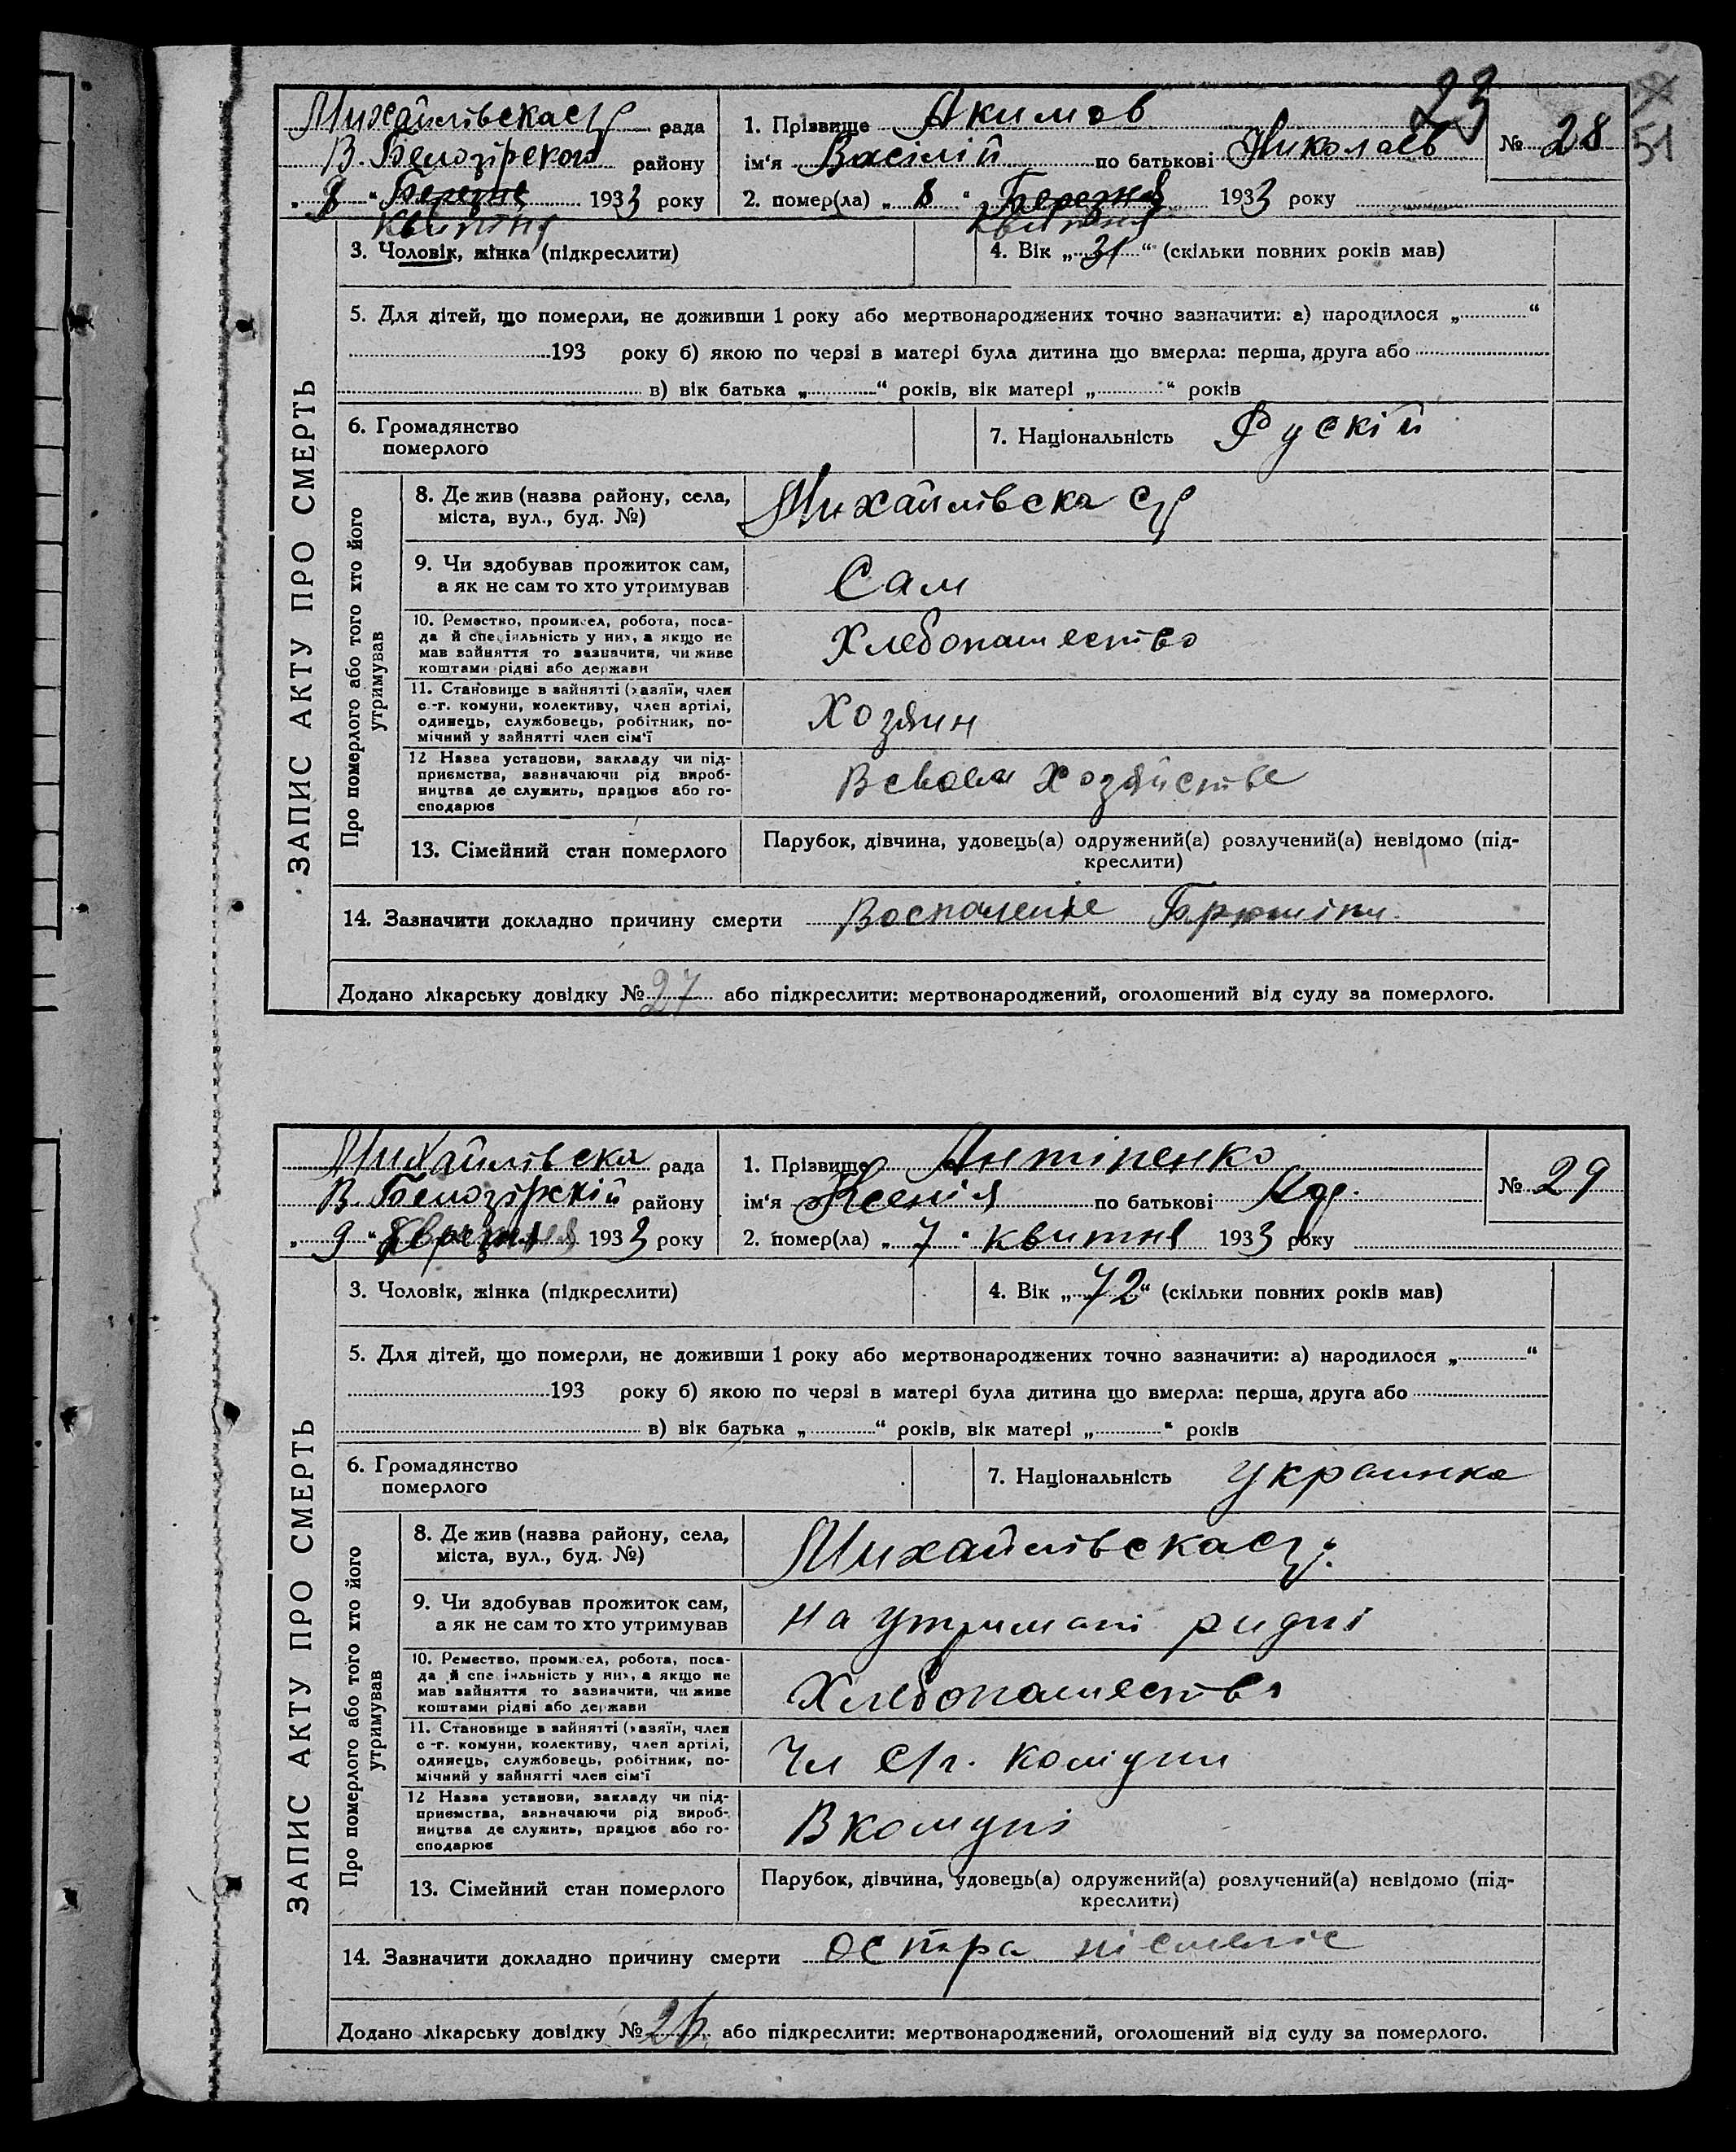 23
51
Михайлівска с/р рада
В. Белозірского району
„ 8 “ Березня 1933 року
квітня
1. Прізвище Акимов
ім‘я Васілій по батькові Николаев
2. помер(ла) „ 8 “ Березня 1933 року
квитня
№ 28
ЗАПИС АКТУ ПРО СМЕРТЬ
3. Чоловік, жінка (підкреслити)
4. Вік „ 31 “ (скільки повних років мав)
5. Для дітей, що померли, не доживши 1 року або мертвонароджених точно зазначити: а) народилося „ “
193 року б) якою по черзі в матері була дитина що вмерла: перша, друга або
в) вік батька „ “ років, вік матері „ “ років
6. Громадянство
померлого
7. Національність Рускій
Про померлого або того хто його
утримував
8. Де жив (назва району, села,
міста, вул., буд. №)
Михайлівска с/р
9. Чи здобував прожиток сам,
а як не сам то хто утримував
Сам
10. Ремество, промисел, робота, поса-
да й спеціяльність у них, а якщо не
мав вайняття то зазначити, чи живе
коштами рідні або держави
Хлебопашество
11. Становище в зайнятті (хазяїн, член
с.-г. комуни, колективу, член артілі,
одинець, службовець, робітник, по-
мічний у зайнятті член сім‘ї
Хозяин
12 Назва установи, закладу чи під-
приємства, зазначаючи рід вироб-
ництва де служить, працює або го-
сподарює
В своем хозяйстве
13. Сімейний стан померлого
Парубок, дівчина, удовець(а) одружений(а) розлучений(а) невідомо (під-
креслити)
14. Зазначити докладно причину смерти Воспаление
Додано лікарську довідку № 27 або підкреслити: мертвонароджений, оголошений від суду за померлого.
Михайлівска рада
В. Белозірскій району
„ 9 “ 1933 року
1. Прізвище Антіпенко
ім‘я Ксенія по батькові
2. помер(ла) „ 7 “ квитня 1933 року
№ 29
ЗАПИС АКТУ ПРО СМЕРТЬ
3. Чоловік, жінка (підкреслити)
4. Вік „ 72 “ (скільки повних років мав)
5. Для дітей, що померли, не доживши 1 року або мертвонароджених точно зазначити: а) народилося „ “
193 року б) якою по черзі в матері була дитина що вмерла: перша, друга або
в) вік батька „ “ років, вік матері „ “ років
6. Громадянство
померлого
7. Національність Украинка
Про померлого або того хто його
утримував
8. Де жив (назва району, села,
міста, вул., буд. №)
Михайлівска с/р.
9. Чи здобував прожиток сам,
а як не сам то хто утримував
на утримані ридні
10. Ремество, промисел, робота, поса-
да й спеціяльність у них, а якщо не
мав вайняття то зазначити, чи живе
коштами рідні або держави
Хлебопашество
11. Становище в зайнятті (хазяїн, член
с.-г. комуни, колективу, член артілі,
одинець, службовець, робітник, по-
мічний у зайнятті член сім‘ї
Чл с/г. комуни
12 Назва установи, закладу чи під-
приємства, зазначаючи рід вироб-
ництва де служить, працює або го-
сподарює
В комуні
13. Сімейний стан померлого
Парубок, дівчина, удовець(а) одружений(а) розлучений(а) невідомо (під-
креслити)
14. Зазначити докладно причину смерти остра
Додано лікарську довідку № 26 або підкреслити: мертвонароджений, оголошений від суду за померлого.